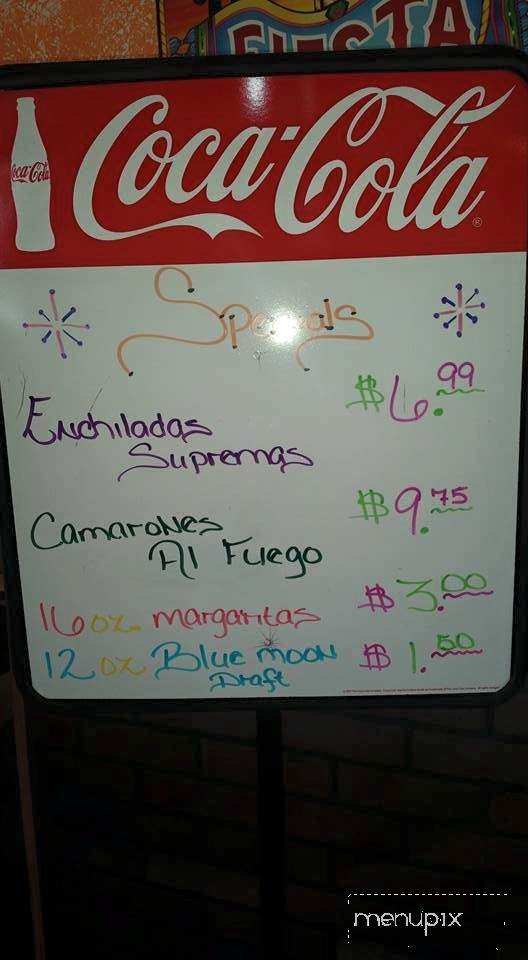 FIESTA
Coca-Cola
Coca-Cola ®
Specials
Enchiladas $6.99
Supremas
Camarones $9.75
Al Fuego
16 oz. margaritas $3.00
12 oz Blue moon $1.50
Draft
menupix